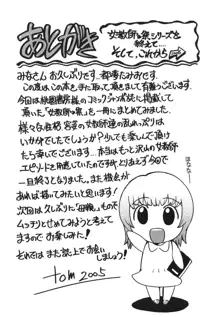 あとがき
女教師の祭シリーズを
終えて…
そして、これから
みなさん お久しぶりです。都考たみおです。
この度はこの本を手に取って頂きまして有難うございます。
今回は
コミックジャンボ誌に掲載して
頂いた「女教師の祭」を一冊にまとめてみました。
様々な性格・容姿の女教師達の乱れっぷりは
いかがでしたでしょうか？少しでも楽しんで頂け
たら幸いでございます…本当はもっと沢山の女教師
エピソードを用意していたのですが とりあえず今回で
一旦終了となりました。また機会が
あれば描いてみたいと思います！
次回は久しぶりに「母親」もので
ムッチリとせめてみようと考えて
ますのでお楽しみに！
それではまた誌上でお会い
しましょう！
tom 2005